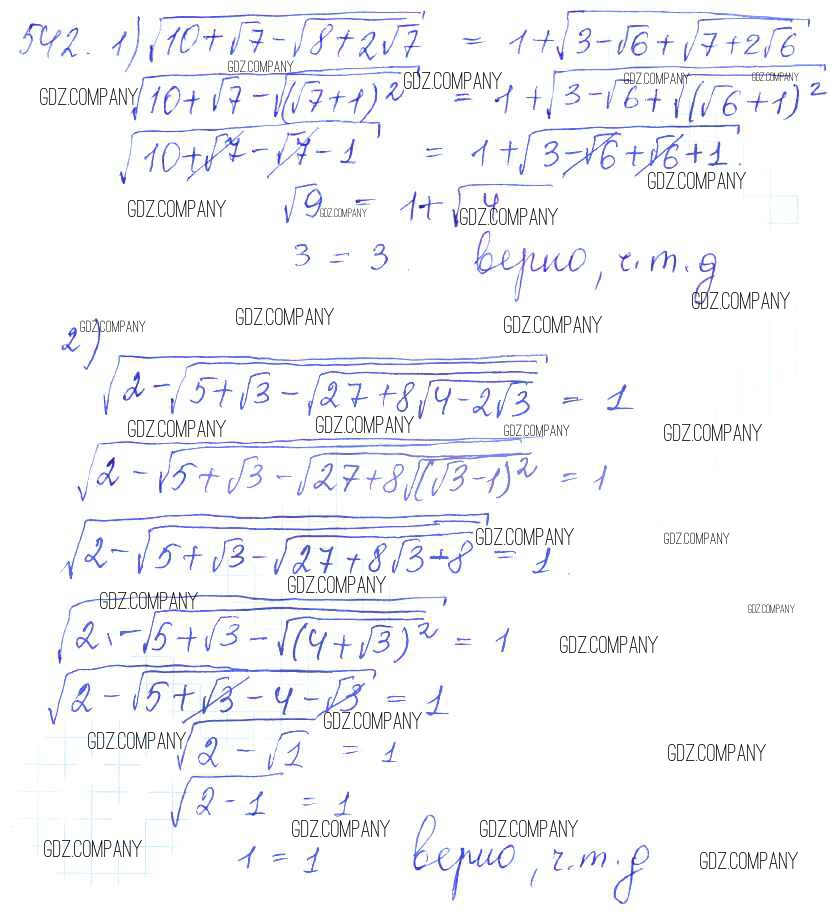 542. 1) √(10+√7-√(8+2√7)) = 1+√(3-√6+√(7+2√6))
GDZ.COMPANY GDZ.COMPANY GDZ.COMPANY GDZ.COMPANY GDZ.COMPANY
√(10+√7-√((√7+1)²)) = 1+√(3-√6+√((√6+1)²))
√(10+√7-√7-1) = 1+√(3-√6+√6+1).
GDZ.COMPANY
GDZ.COMPANY GDZ.COMPANY GDZ.COMPANY
√9 = 1+√4
3 = 3. верно, ч.т.д
GDZ.COMPANY
GDZ.COMPANY GDZ.COMPANY GDZ.COMPANY
2)
√(2-√(5+√3-√(27+8√(4-2√3)))) = 1
GDZ.COMPANY GDZ.COMPANY GDZ.COMPANY GDZ.COMPANY
√(2-√(5+√3-√(27+8√((√3-1)²)))) = 1
GDZ.COMPANY GDZ.COMPANY
√(2-√(5+√3-√(27+8√3-8))) = 1.
GDZ.COMPANY
GDZ.COMPANY GDZ.COMPANY
√(2-√(5+√3-√((4+√3)²))) = 1
GDZ.COMPANY
√(2-√(5+√3-4-√3)) = 1
GDZ.COMPANY
GDZ.COMPANY GDZ.COMPANY
√(2-√1) = 1
√(2-1) = 1
GDZ.COMPANY GDZ.COMPANY
GDZ.COMPANY GDZ.COMPANY
1 = 1 верно, ч.т.д